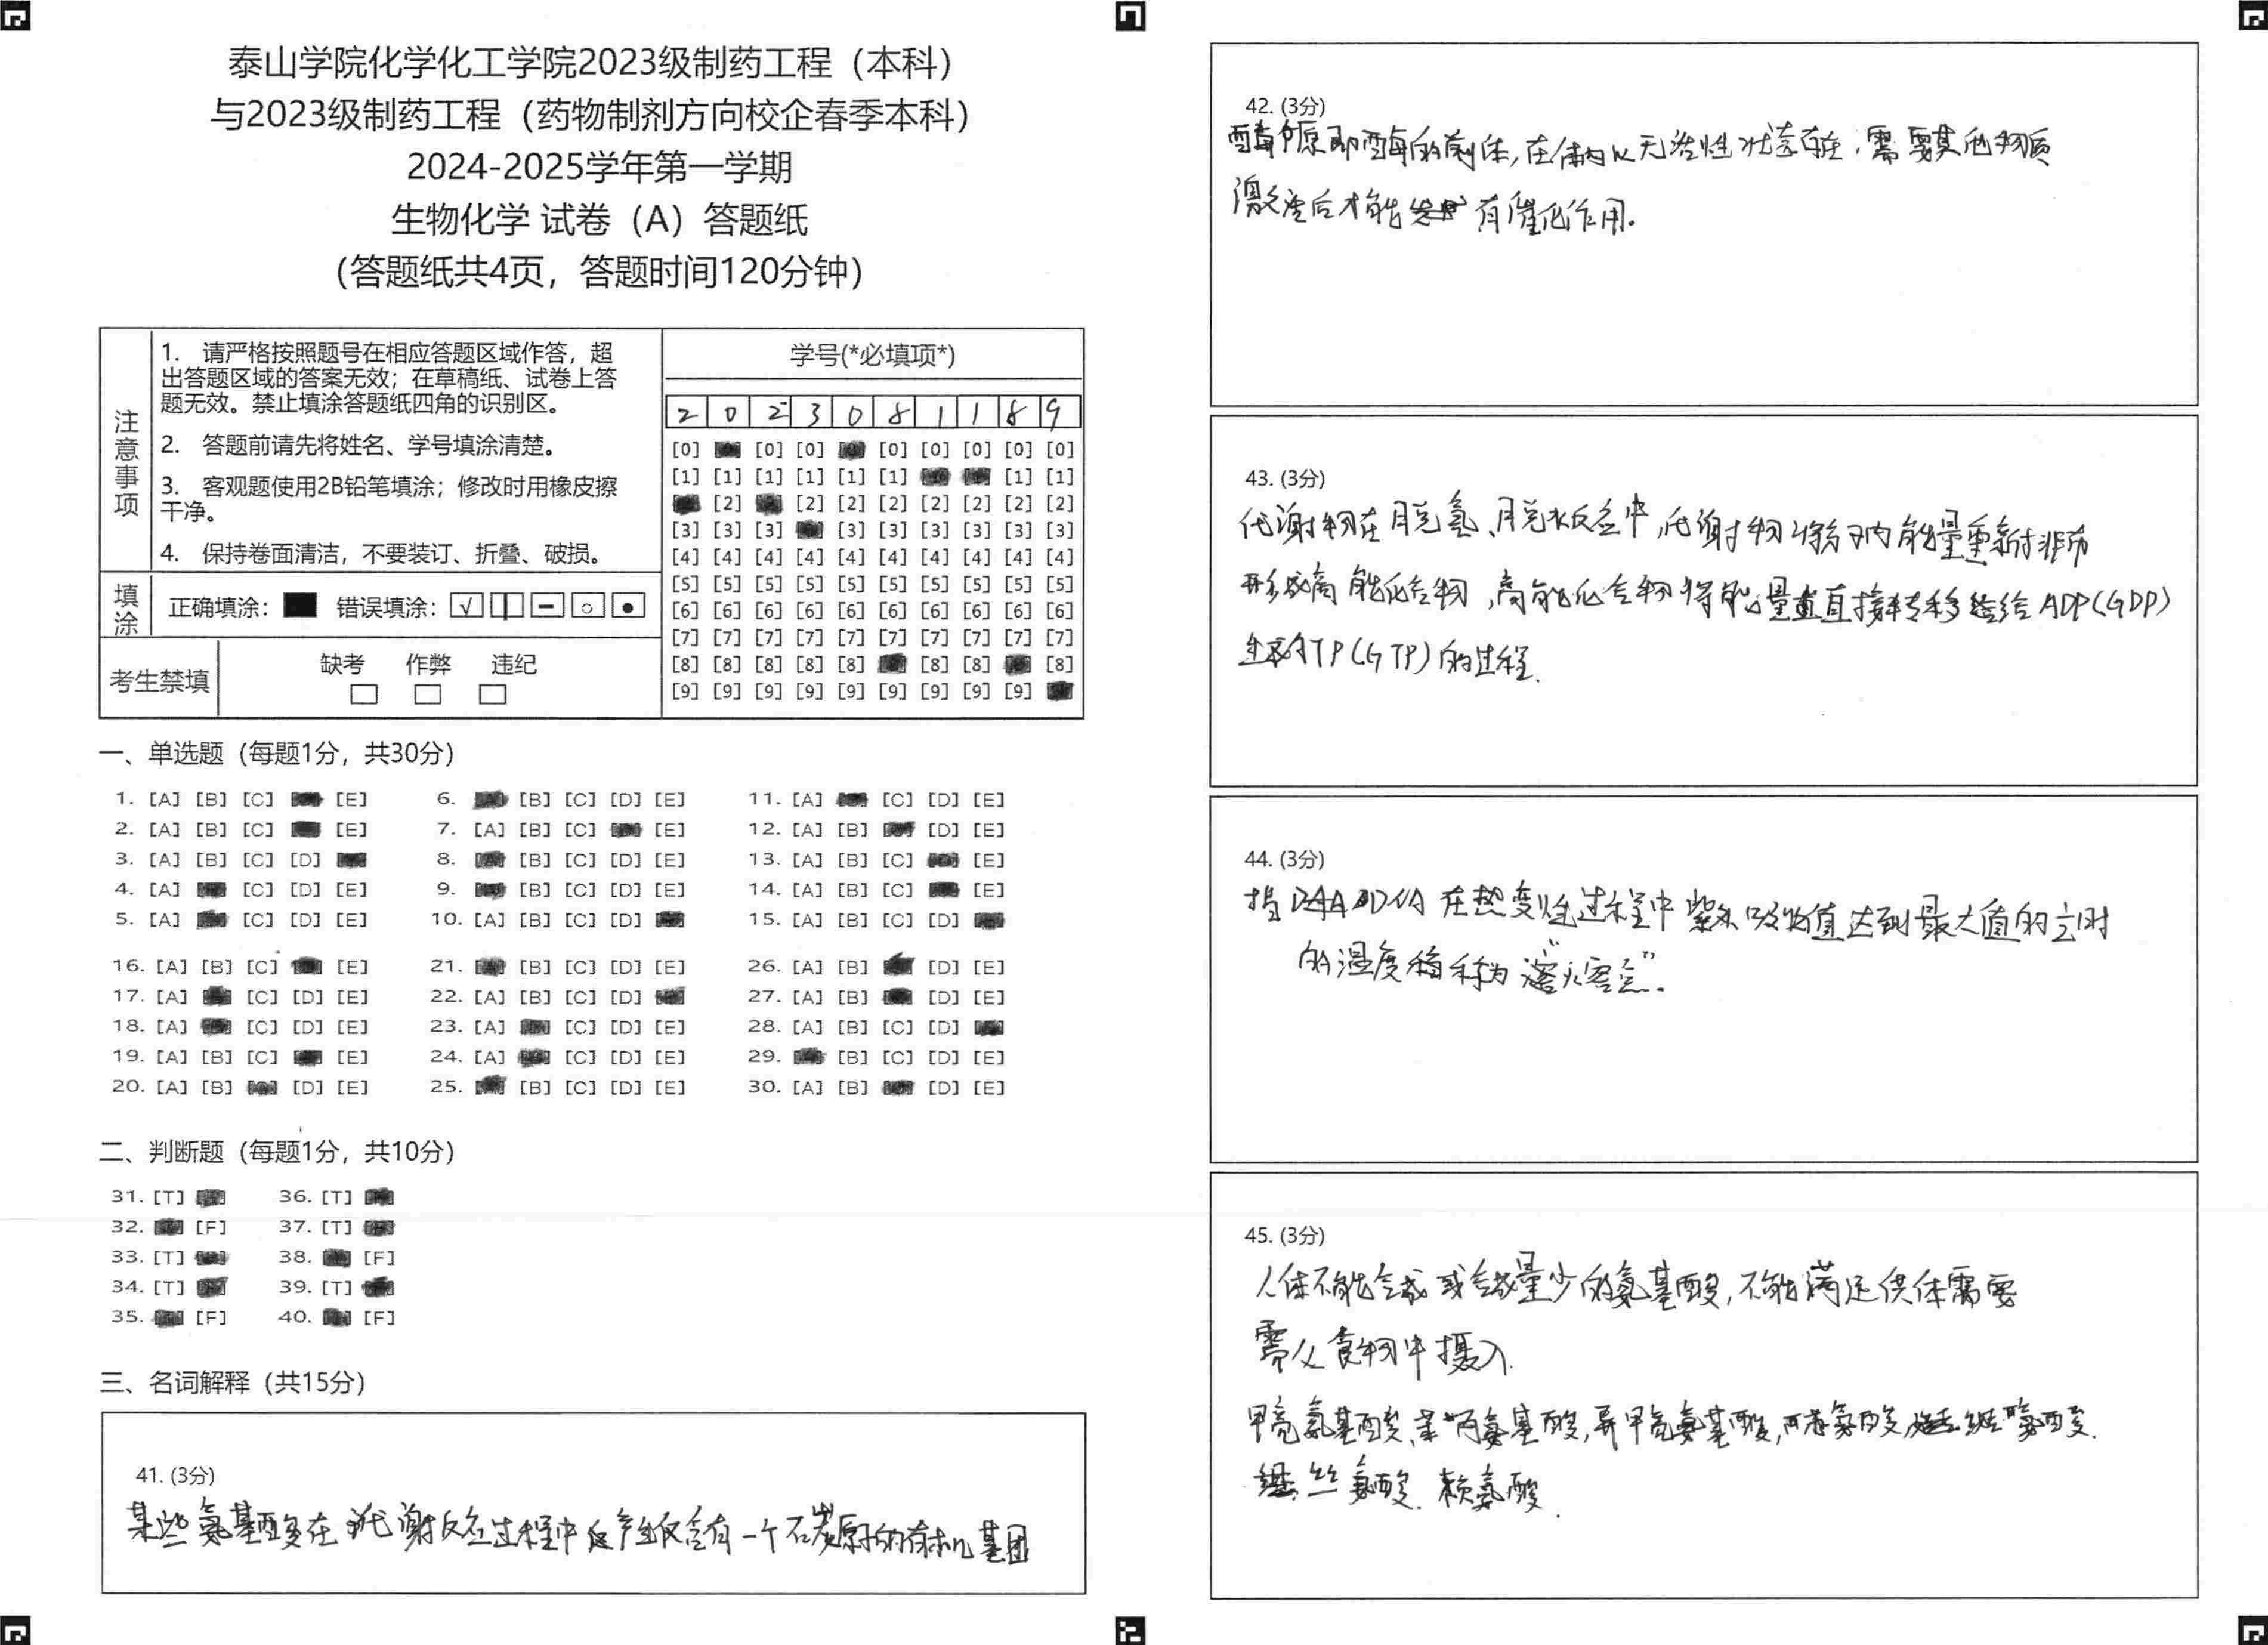 泰山学院化学化工学院2023级制药工程（本科）
与2023级制药工程（药物制剂方向校企春季本科）
2024-2025学年第一学期
生物化学 试卷（A）答题纸
（答题纸共4页，答题时间120分钟）
注意事项
1. 请严格按照题号在相应答题区域作答，超
出答题区域的答案无效；在草稿纸、试卷上答
题无效。禁止填涂答题纸四角的识别区。
2. 答题前请先将姓名、学号填涂清楚。
3. 客观题使用2B铅笔填涂；修改时用橡皮擦
干净。
4. 保持卷面清洁，不要装订、折叠、破损。
填涂
正确填涂： 错误填涂：
考生禁填
缺考 作弊 违纪
学号(*必填项*)
2 0 2 3 0 8 1 1 8 9
[0] [0] [0] [0] [0] [0] [0] [0]
[1] [1] [1] [1] [1] [1] [1] [1]
[2] [2] [2] [2] [2] [2] [2] [2]
[3] [3] [3] [3] [3] [3] [3] [3] [3]
[4] [4] [4] [4] [4] [4] [4] [4] [4] [4]
[5] [5] [5] [5] [5] [5] [5] [5] [5] [5]
[6] [6] [6] [6] [6] [6] [6] [6] [6] [6]
[7] [7] [7] [7] [7] [7] [7] [7] [7] [7]
[8] [8] [8] [8] [8] [8] [8] [8]
[9] [9] [9] [9] [9] [9] [9] [9] [9]
一、单选题（每题1分，共30分）
1. [A] [B] [C] [E] 6. [B] [C] [D] [E] 11. [A] [C] [D] [E]
2. [A] [B] [C] [E] 7. [A] [B] [C] [E] 12. [A] [B] [D] [E]
3. [A] [B] [C] [D] 8. [B] [C] [D] [E] 13. [A] [B] [C] [E]
4. [A] [C] [D] [E] 9. [B] [C] [D] [E] 14. [A] [B] [C] [E]
5. [A] [C] [D] [E] 10. [A] [B] [C] [D] 15. [A] [B] [C] [D]
16. [A] [B] [C] [E] 21. [B] [C] [D] [E] 26. [A] [B] [D] [E]
17. [A] [C] [D] [E] 22. [A] [B] [C] [D] 27. [A] [B] [D] [E]
18. [A] [C] [D] [E] 23. [A] [C] [D] [E] 28. [A] [B] [C] [D]
19. [A] [B] [C] [E] 24. [A] [C] [D] [E] 29. [B] [C] [D] [E]
20. [A] [B] [D] [E] 25. [B] [C] [D] [E] 30. [A] [B] [D] [E]
二、判断题（每题1分，共10分）
31. [T] 36. [T]
32. [F] 37. [T]
33. [T] 38. [F]
34. [T] 39. [T]
35. [F] 40. [F]
三、名词解释（共15分）
41. (3分)
某些氨基酸在代谢反应过程中产生仅含有一个碳原子的有机基团
42. (3分)
酶原即酶的前体，在体内以无活性状态存在，需要其他物质
激活后才能有催化作用。
43. (3分)
代谢物在脱氢、脱水反应中，代谢物分子内能量重新排布
形成高能化合物，高能化合物将能量直接转移给ADP(GDP)
生成ATP(GTP)的过程.
44. (3分)
指DNA在热变性过程中紫外吸收值达到最大值的 时
的温度称为“溶解 ”.
45. (3分)
人体不能合成或合成量少的氨基酸，不能满足供体需要
需从食物中摄入.
甲硫氨基酸、苯丙氨基酸，异甲硫氨基酸，苏氨酸， 氨酸.
丝氨酸. 赖氨酸.